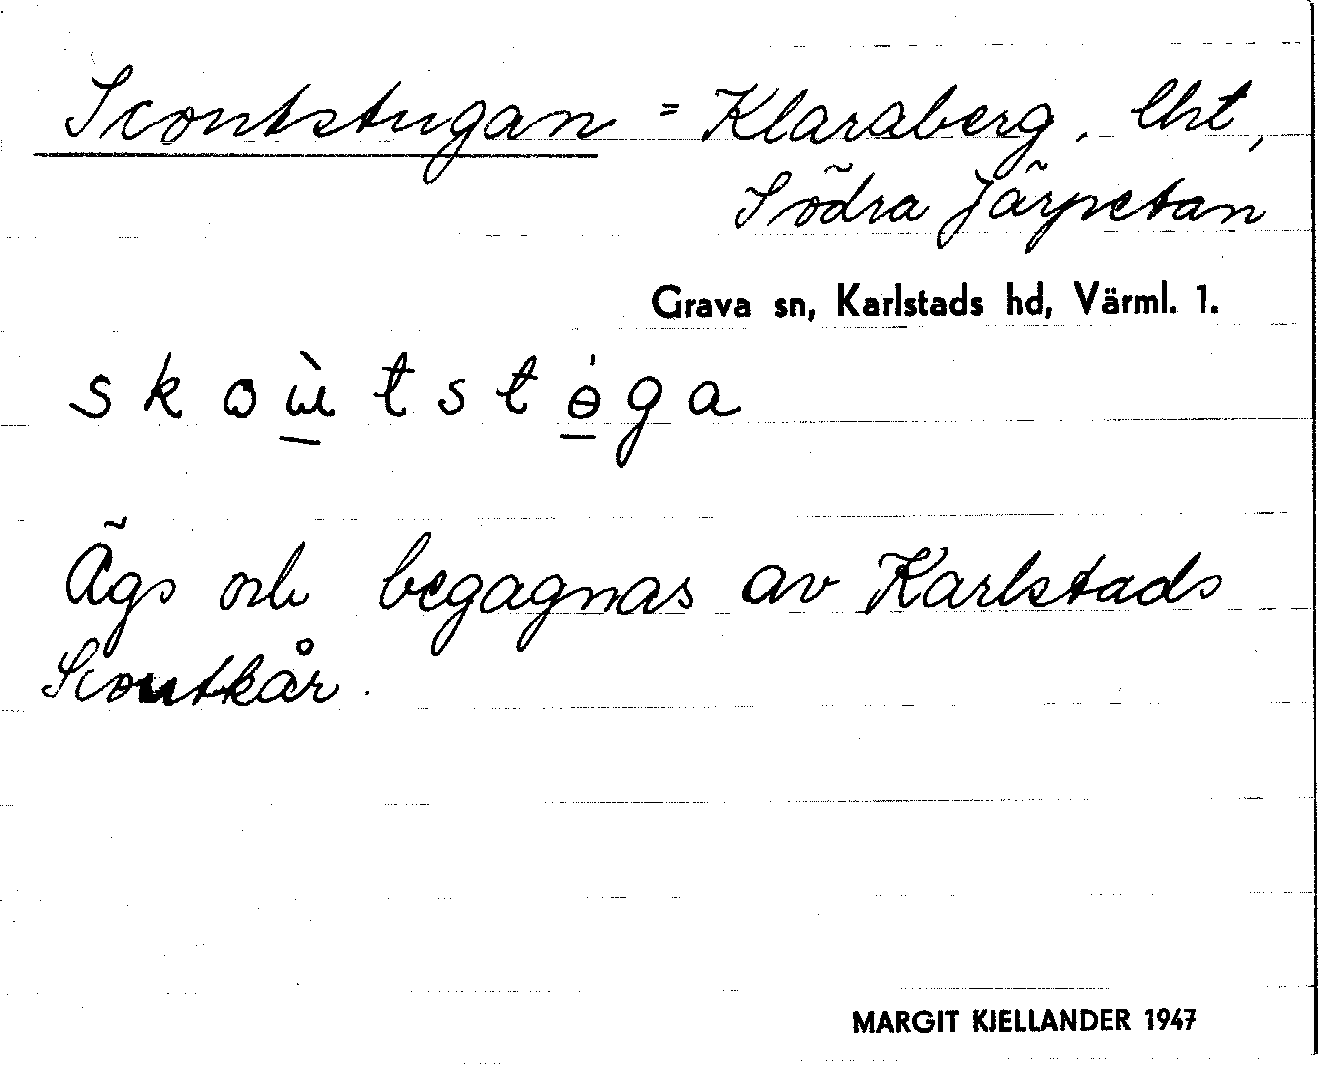 Scoutstugan = Klaraberg, lht,
Södra Järpetan
Grava sn, Karlstads hd, Värml. 1.
s k o ɯ̀ t s t ɵ́ g a
Ägs och begagnas av Karlstads
Scoutkår.
MARGIT KJELLANDER 1947